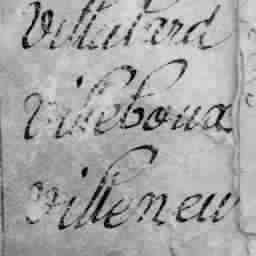 Villatard
Villeboux
Villeneu